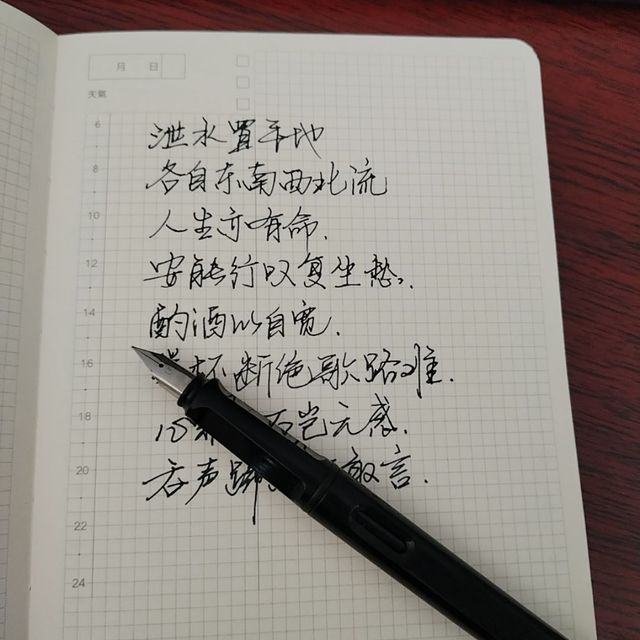 月 日
天氣
6
泄水置平地
8
各自东南西北流
10
人生亦有命.
12
安能行叹复坐愁.
14
酌酒以自宽.
16
杯断绝歌路难.
18
心 石岂无感.
20
吞声 敢言.
22
24